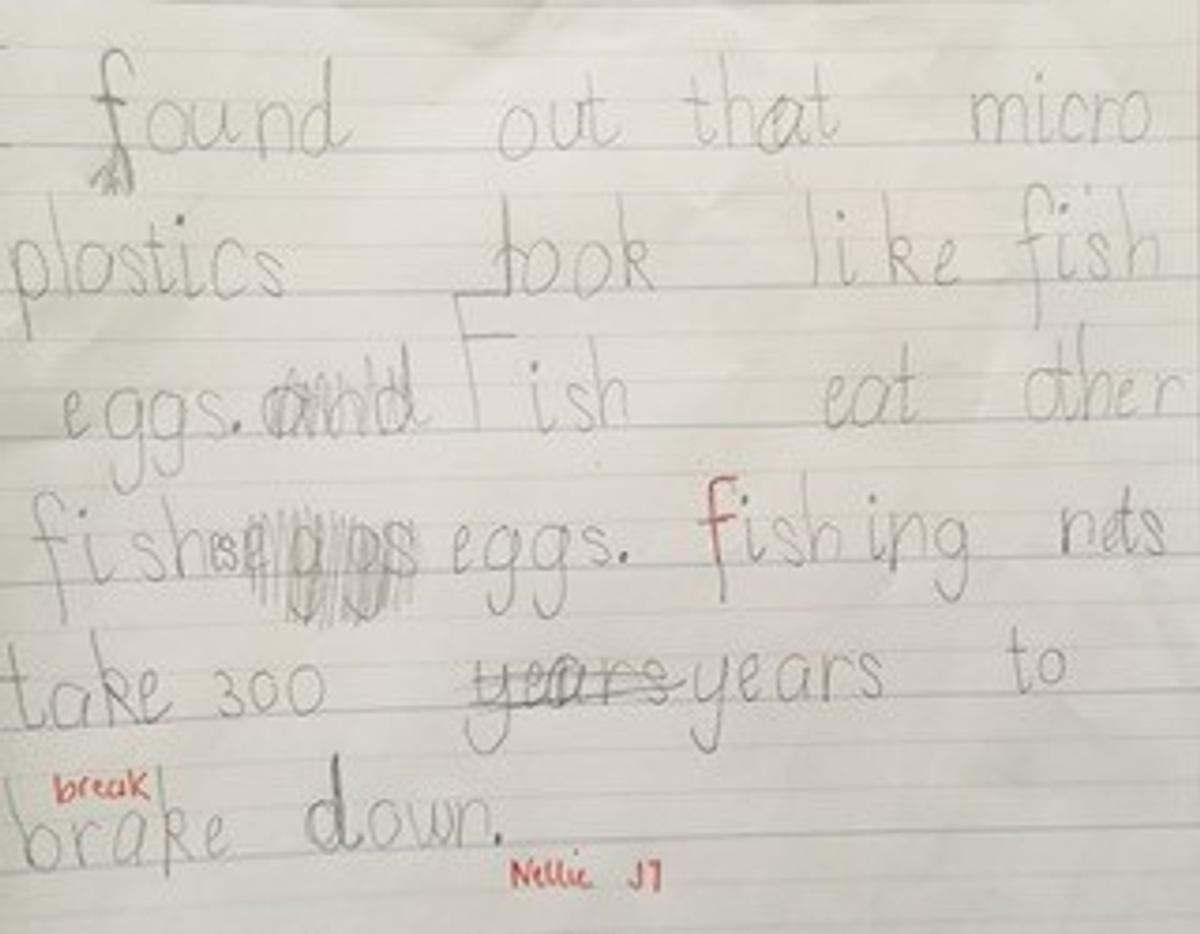 found out that micro
plastics look like fish
eggs. and Fish eat other
fishes eggs eggs. fishing nets
take 300 years years to
break
brake down.
Nellie J1